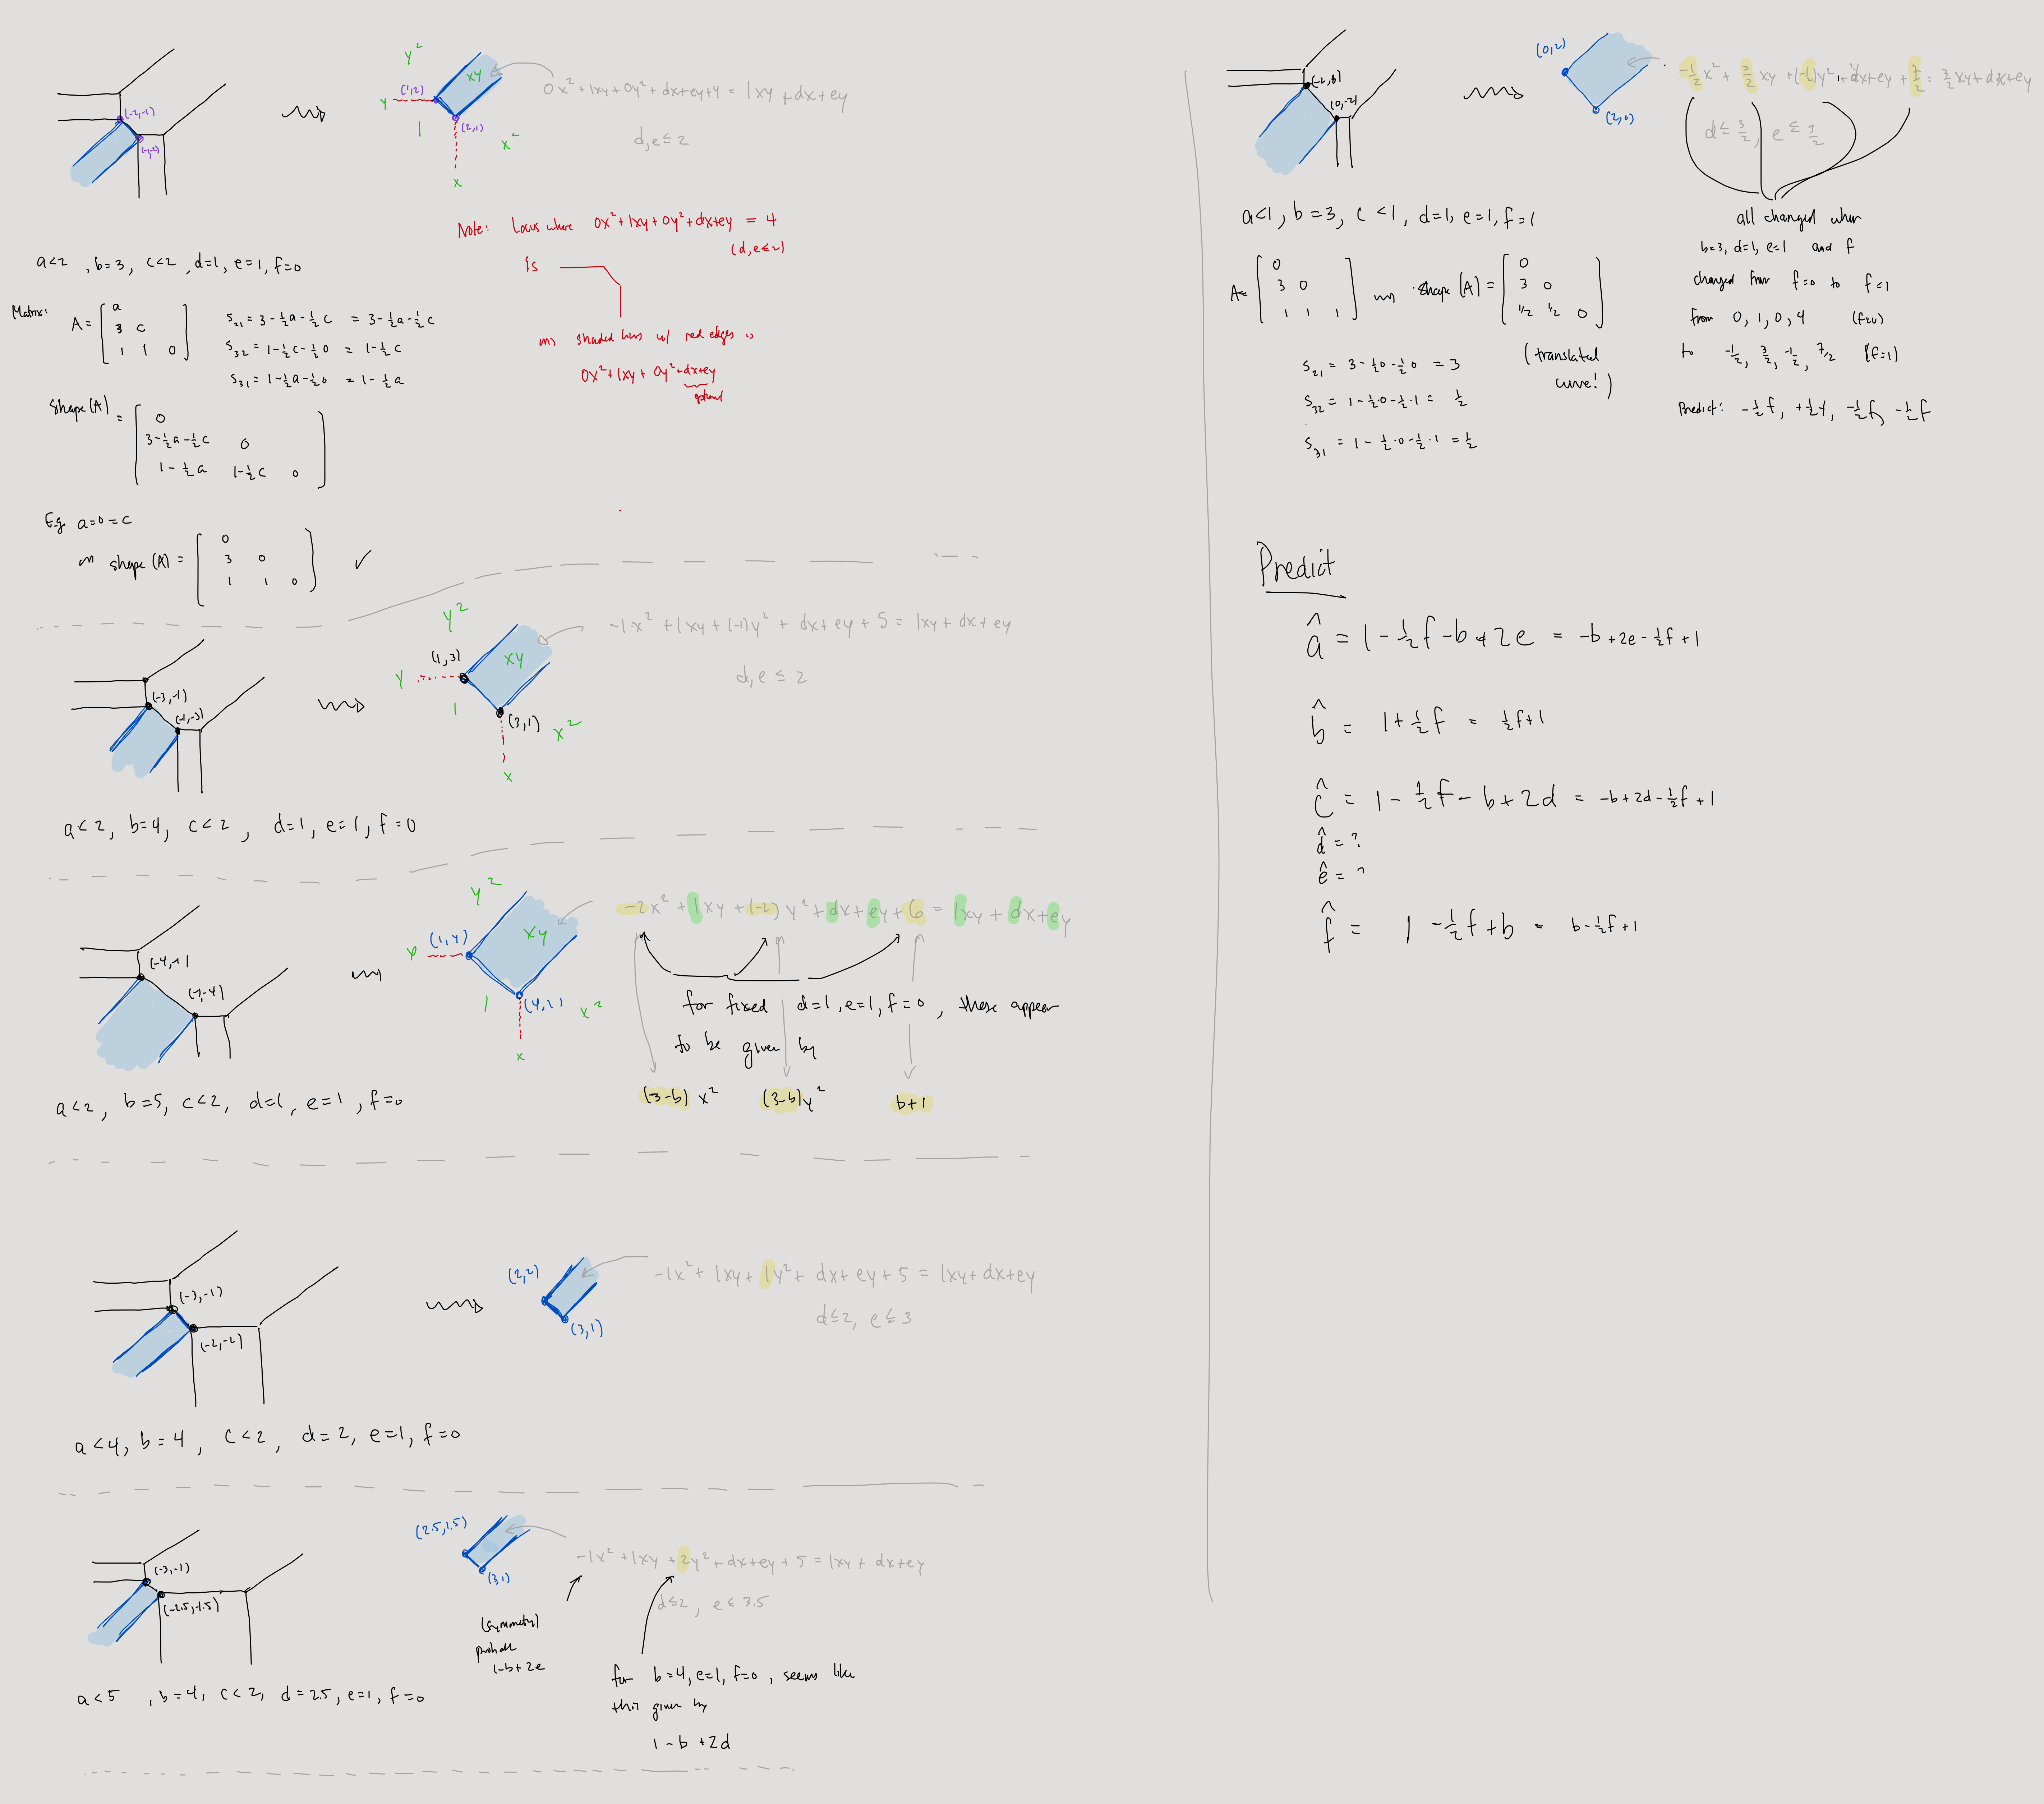 (-2,-1)
(-1,-2)
y²
(1,2)
xy
y
1
(2,1)
x²
x
0x² + 1xy + 0y² + dx + ey + 4 = 1xy + dx + ey
d, e ≤ 2
Note: Locus where 0x² + 1xy + 0y² + dx + ey = 4
(d, e ≤ 2)
is
⇝ shaded locus w/ red edges is
0x² + 1xy + 0y² + dx + ey
a<2 , b=3, c<2 , d=1, e=1, f=0
Matrix:
A = [ a
3 c
1 1 0 ]
S₂₁ = 3 - ½a - ½c = 3 - ½a - ½c
S₃₂ = 1 - ½c - ½0 = 1 - ½c
S₃₁ = 1 - ½a - ½0 = 1 - ½a
Shape(A) = [ 0
3 - ½a - ½c 0
1 - ½a 1 - ½c 0 ]
E.g. a=0=c
⇝ shape(A) = [ 0
3 0
1 1 0 ] ✓
(-3,-1)
(-1,-3)
y²
(1,3)
xy
y
1
(3,1)
x²
x
-1x² + 1xy + (-1)y² + dx + ey + 5 = 1xy + dx + ey
d, e ≤ 2
a<2, b=4, c<2, d=1, e=1, f=0
(-4,-1)
(-1,-4)
y²
(1,4)
xy
y
1
(4,1)
x²
x
-2x² + 1xy + (-2)y² + dx + ey + 6 = 1xy + dx + ey
for fixed d=1, e=1, f=0, these appear
to be given by
(3-b) x² (3-b)y² b+1
a<2, b=5, c<2, d=1, e=1, f=0
(-3,-1)
(-2,-2)
(2,2)
(3,1)
-1x² + 1xy + 1y² + dx + ey + 5 = 1xy + dx + ey
d ≤ 2, e ≤ 3
a<4, b=4, c<2, d=2, e=1, f=0
(-3,-1)
(-2.5,-1.5)
(2.5,1.5)
(3,1)
-1x² + 1xy + 2y² + dx + ey + 5 = 1xy + dx + ey
d ≤ 2, e ≤ 3.5
(symmetry)
1-b+2e
for b=4, e=1, f=0, seems like
this given by
1 - b + 2d
a<5 , b=4, c<2, d=2.5, e=1, f=0
(-2,0)
(0,-2)
(0,2)
(2,0)
-½x² + 3/2 xy + (-½)y² + dx + ey + 7/2 = 3/2 xy + dx + ey
d ≤ 3/2, e ≤ 3/2
a<1, b=3, c<1, d=1, e=1, f=1
all changed when
b=3, d=1, e=1 and f
changed from f=0 to f=1
from 0, 1, 0, 4 (f=0)
to -½, 3/2, -½, 7/2 (f=1)
Predict: -½f, +½f, -½f, -½f
A = [ 0
3 0
1 1 1 ] ⇝ shape(A) = [ 0
3 0
1/2 1/2 0 ]
(translated
curve!)
S₂₁ = 3 - ½0 - ½0 = 3
S₃₂ = 1 - ½·0 - ½·1 = ½
S₃₁ = 1 - ½·0 - ½·1 = ½
Predict
â = 1 - ½f - b + 2e = -b + 2e - ½f + 1
b̂ = 1 + ½f = ½f + 1
ĉ = 1 - ½f - b + 2d = -b + 2d - ½f + 1
d̂ = ?
ê = ?
f̂ = 1 - ½f + b = b - ½f + 1